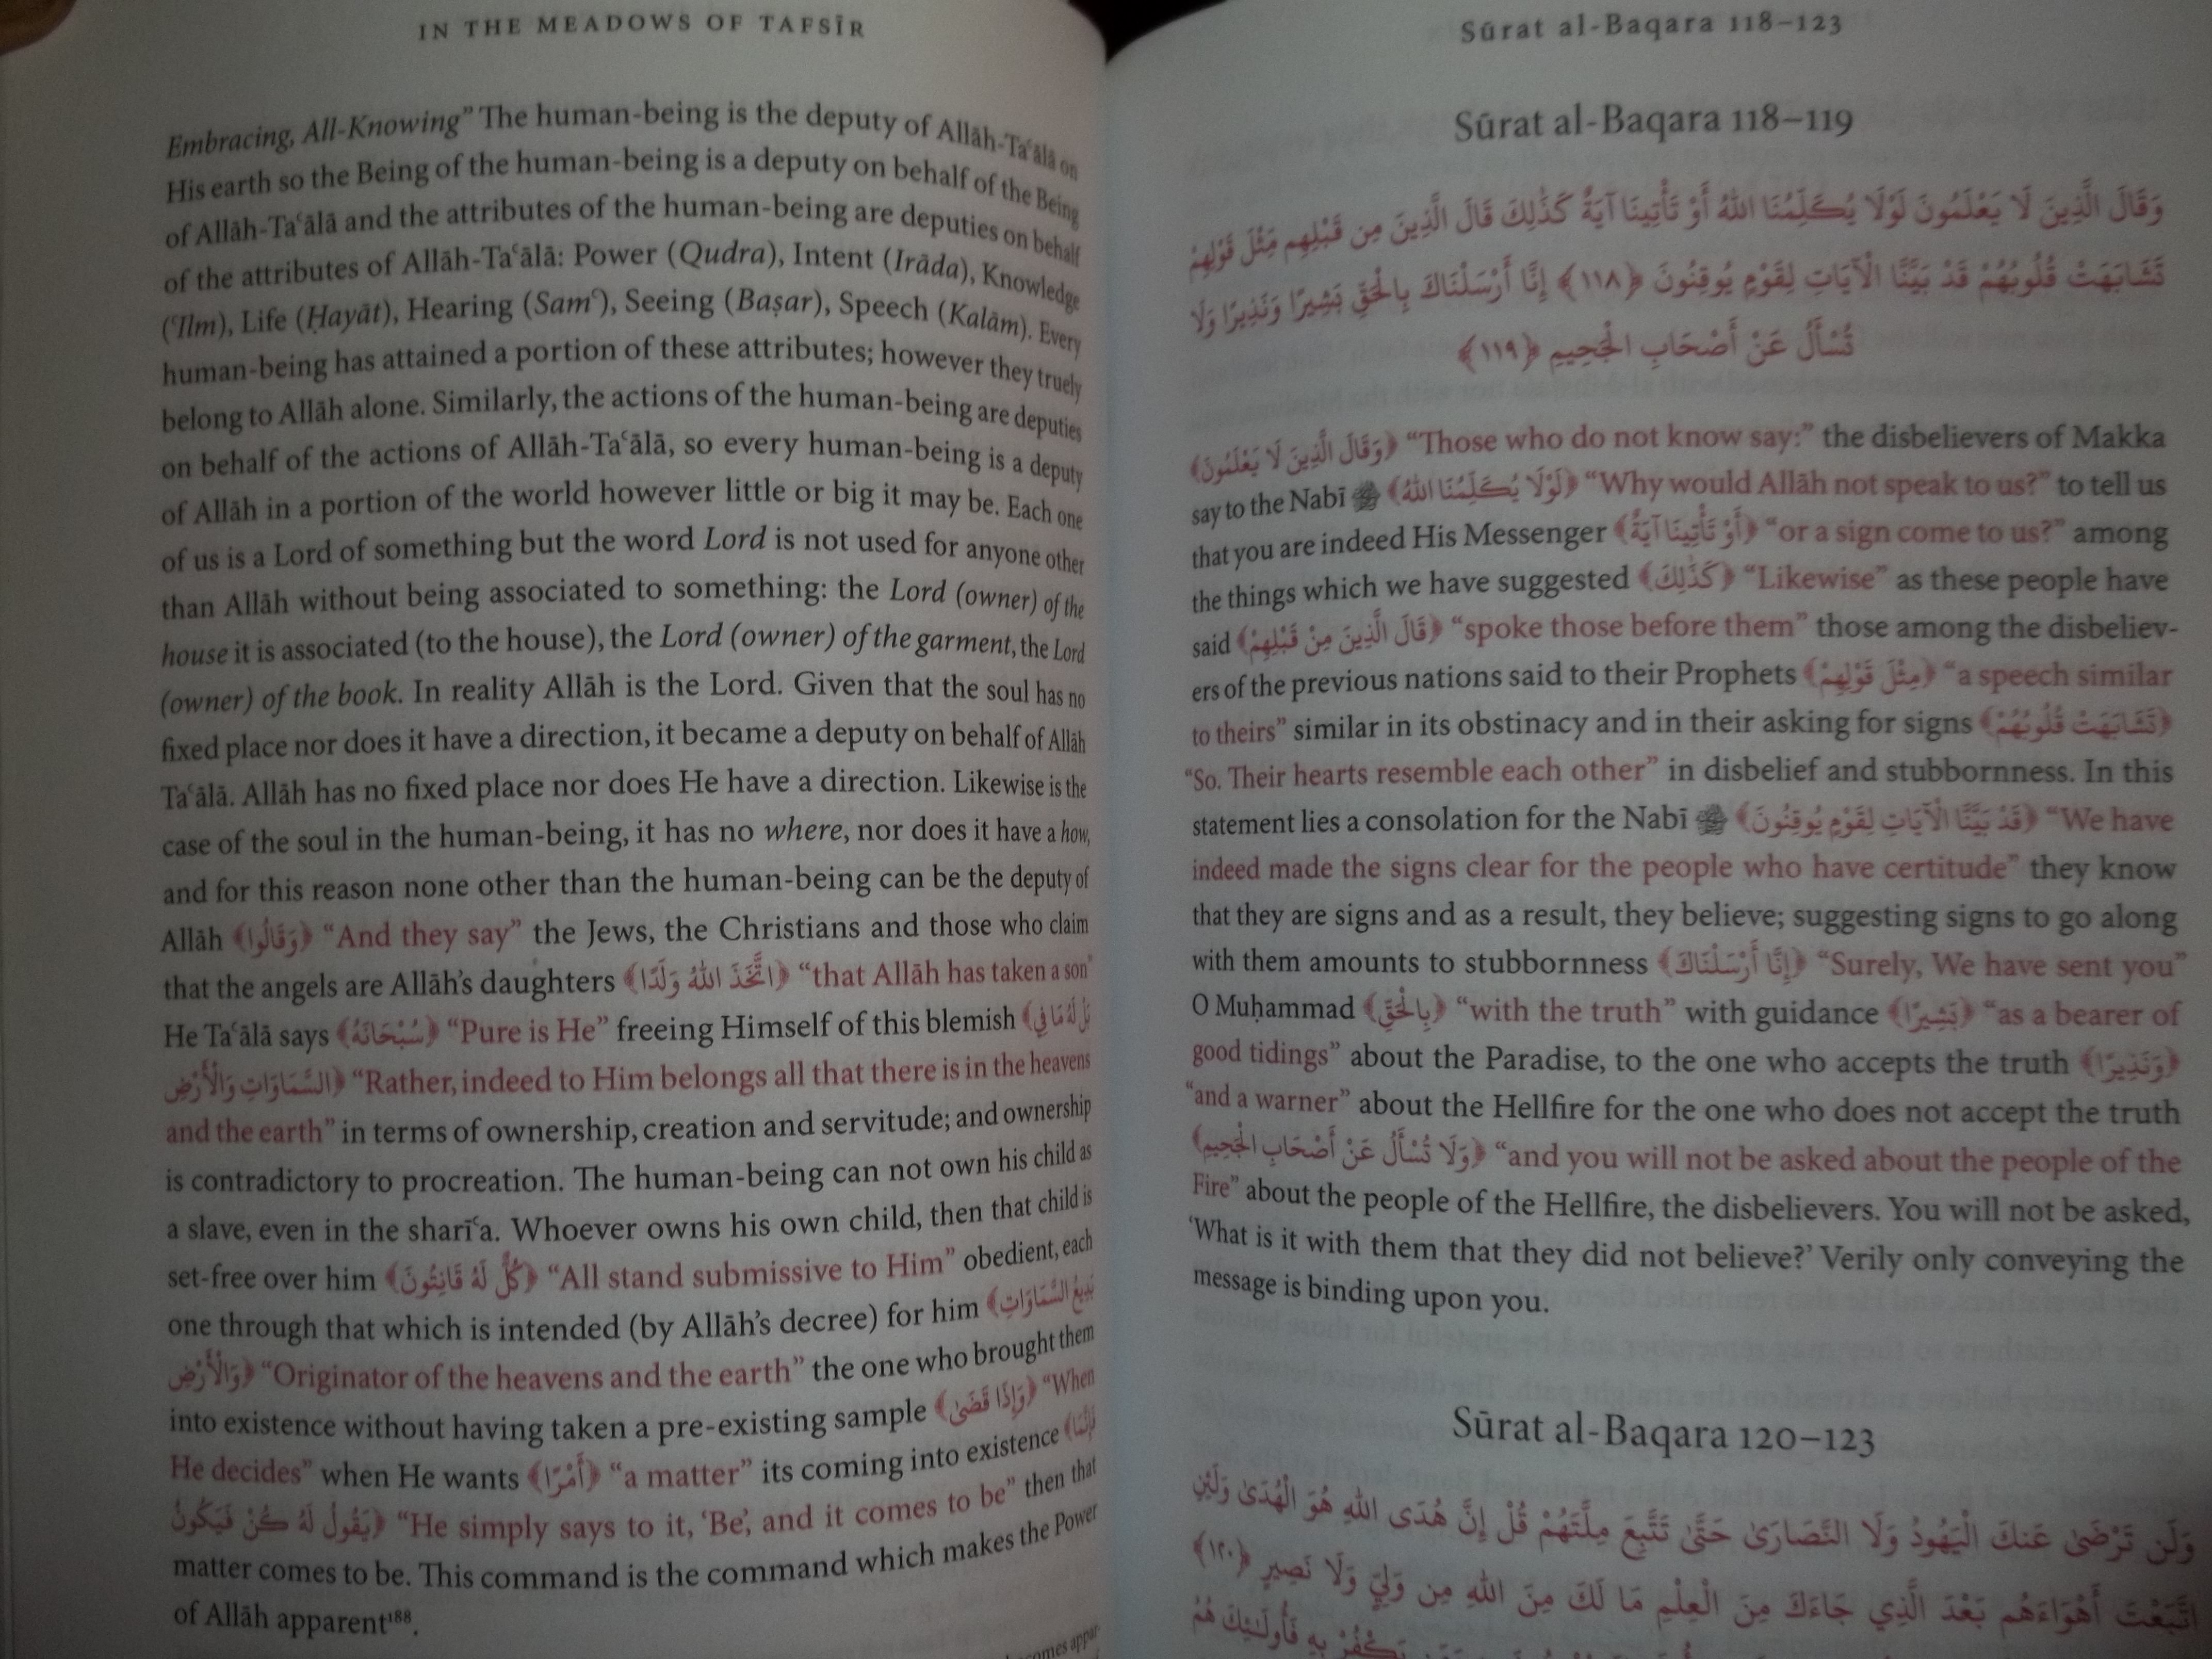 IN THE MEADOWS OF TAFSĪR
Embracing, All-Knowing” The human-being is the deputy of Allāh-Taʿālā on
His earth so the Being of the human-being is a deputy on behalf of the Being
of Allāh-Taʿālā and the attributes of the human-being are deputies on behalf
of the attributes of Allāh-Taʿālā: Power (Qudra), Intent (Irāda), Knowledge
(ʿIlm), Life (Ḥayāt), Hearing (Samʿ), Seeing (Baṣar), Speech (Kalām). Every
human-being has attained a portion of these attributes; however they truely
belong to Allāh alone. Similarly, the actions of the human-being are deputies
on behalf of the actions of Allāh-Taʿālā, so every human-being is a deputy
of Allāh in a portion of the world however little or big it may be. Each one
of us is a Lord of something but the word Lord is not used for anyone other
than Allāh without being associated to something: the Lord (owner) of the
house it is associated (to the house), the Lord (owner) of the garment, the Lord
(owner) of the book. In reality Allāh is the Lord. Given that the soul has no
fixed place nor does it have a direction, it became a deputy on behalf of Allāh
Taʿālā. Allāh has no fixed place nor does He have a direction. Likewise is the
case of the soul in the human-being, it has no where, nor does it have a how,
and for this reason none other than the human-being can be the deputy of
Allāh ﴿وَقَالُوا﴾ “And they say” the Jews, the Christians and those who claim
that the angels are Allāh’s daughters ﴿اتَّخَذَ اللهُ وَلَدًا﴾ “that Allāh has taken a son”
He Taʿālā says ﴿سُبْحَانَهُ﴾ “Pure is He” freeing Himself of this blemish ﴿بَل لَّهُ مَا فِي
السَّمَاوَاتِ وَالْأَرْضِ﴾ “Rather, indeed to Him belongs all that there is in the heavens
and the earth” in terms of ownership, creation and servitude; and ownership
is contradictory to procreation. The human-being can not own his child as
a slave, even in the sharīʿa. Whoever owns his own child, then that child is
set-free over him ﴿كُلٌّ لَهُ قَانِتُونَ﴾ “All stand submissive to Him” obedient, each
one through that which is intended (by Allāh’s decree) for him ﴿بَدِيعُ السَّمَاوَاتِ
وَالْأَرْضِ﴾ “Originator of the heavens and the earth” the one who brought them
into existence without having taken a pre-existing sample ﴿وَإِذَا قَضَىٰ﴾ “When
He decides” when He wants ﴿أَمْرًا﴾ “a matter” its coming into existence ﴿فَإِنَّمَا
يَقُولُ لَهُ كُنْ فَيَكُونُ﴾ “He simply says to it, ‘Be’, and it comes to be” then that
matter comes to be. This command is the command which makes the Power
of Allāh apparent¹⁸⁸.
comes appar-
Sūrat al-Baqara 118–123
Sūrat al-Baqara 118–119
وَقَالَ الَّذِينَ لَا يَعْلَمُونَ لَوْلَا يُكَلِّمُنَا اللهُ أَوْ تَأْتِينَا آيَةٌ كَذَٰلِكَ قَالَ الَّذِينَ مِن قَبْلِهِم مِّثْلَ قَوْلِهِمْ
تَشَابَهَتْ قُلُوبُهُمْ قَدْ بَيَّنَّا الْآيَاتِ لِقَوْمٍ يُوقِنُونَ ﴿١١٨﴾ إِنَّا أَرْسَلْنَاكَ بِالْحَقِّ بَشِيرًا وَنَذِيرًا وَلَا
تُسْأَلُ عَنْ أَصْحَابِ الْجَحِيمِ ﴿١١٩﴾
﴿وَقَالَ الَّذِينَ لَا يَعْلَمُونَ﴾ “Those who do not know say:” the disbelievers of Makka
say to the Nabī ﷺ ﴿لَوْلَا يُكَلِّمُنَا اللهُ﴾ “Why would Allāh not speak to us?” to tell us
that you are indeed His Messenger ﴿أَوْ تَأْتِينَا آيَةٌ﴾ “or a sign come to us?” among
the things which we have suggested ﴿كَذَٰلِكَ﴾ “Likewise” as these people have
said ﴿قَالَ الَّذِينَ مِنْ قَبْلِهِمْ﴾ “spoke those before them” those among the disbeliev-
ers of the previous nations said to their Prophets ﴿مِثْلَ قَوْلِهِمْ﴾ “a speech similar
to theirs” similar in its obstinacy and in their asking for signs ﴿تَشَابَهَتْ قُلُوبُهُمْ﴾
“So. Their hearts resemble each other” in disbelief and stubbornness. In this
statement lies a consolation for the Nabī ﷺ ﴿قَدْ بَيَّنَّا الْآيَاتِ لِقَوْمٍ يُوقِنُونَ﴾ “We have
indeed made the signs clear for the people who have certitude” they know
that they are signs and as a result, they believe; suggesting signs to go along
with them amounts to stubbornness ﴿إِنَّا أَرْسَلْنَاكَ﴾ “Surely, We have sent you”
O Muḥammad ﴿بِالْحَقِّ﴾ “with the truth” with guidance ﴿بَشِيرًا﴾ “as a bearer of
good tidings” about the Paradise, to the one who accepts the truth ﴿وَنَذِيرًا﴾
“and a warner” about the Hellfire for the one who does not accept the truth
﴿وَلَا تُسْأَلُ عَنْ أَصْحَابِ الْجَحِيمِ﴾ “and you will not be asked about the people of the
Fire” about the people of the Hellfire, the disbelievers. You will not be asked,
‘What is it with them that they did not believe?’ Verily only conveying the
message is binding upon you.
Sūrat al-Baqara 120–123
وَلَن تَرْضَىٰ عَنكَ الْيَهُودُ وَلَا النَّصَارَىٰ حَتَّىٰ تَتَّبِعَ مِلَّتَهُمْ قُلْ إِنَّ هُدَى اللهِ هُوَ الْهُدَىٰ وَلَئِنِ
اتَّبَعْتَ أَهْوَاءَهُم بَعْدَ الَّذِي جَاءَكَ مِنَ الْعِلْمِ مَا لَكَ مِنَ اللهِ مِن وَلِيٍّ وَلَا نَصِيرٍ ﴿١٢٠﴾
يَكْفُرْ بِهِ فَأُولَٰئِكَ هُمُ